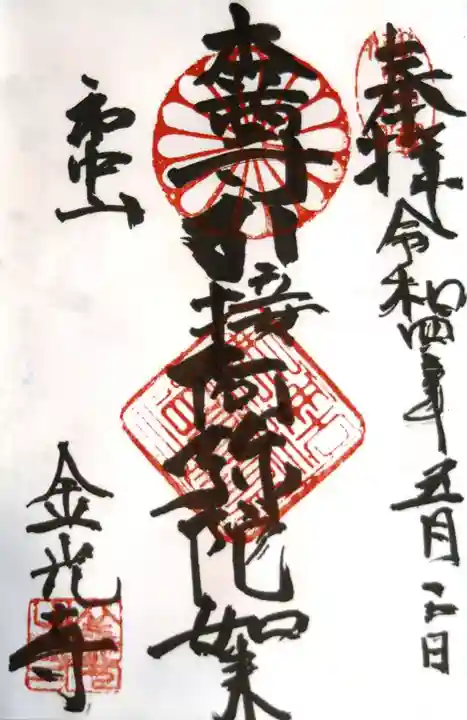 奉拝 令和四年五月二日
本尊 引接阿弥陀如来
山
金光寺